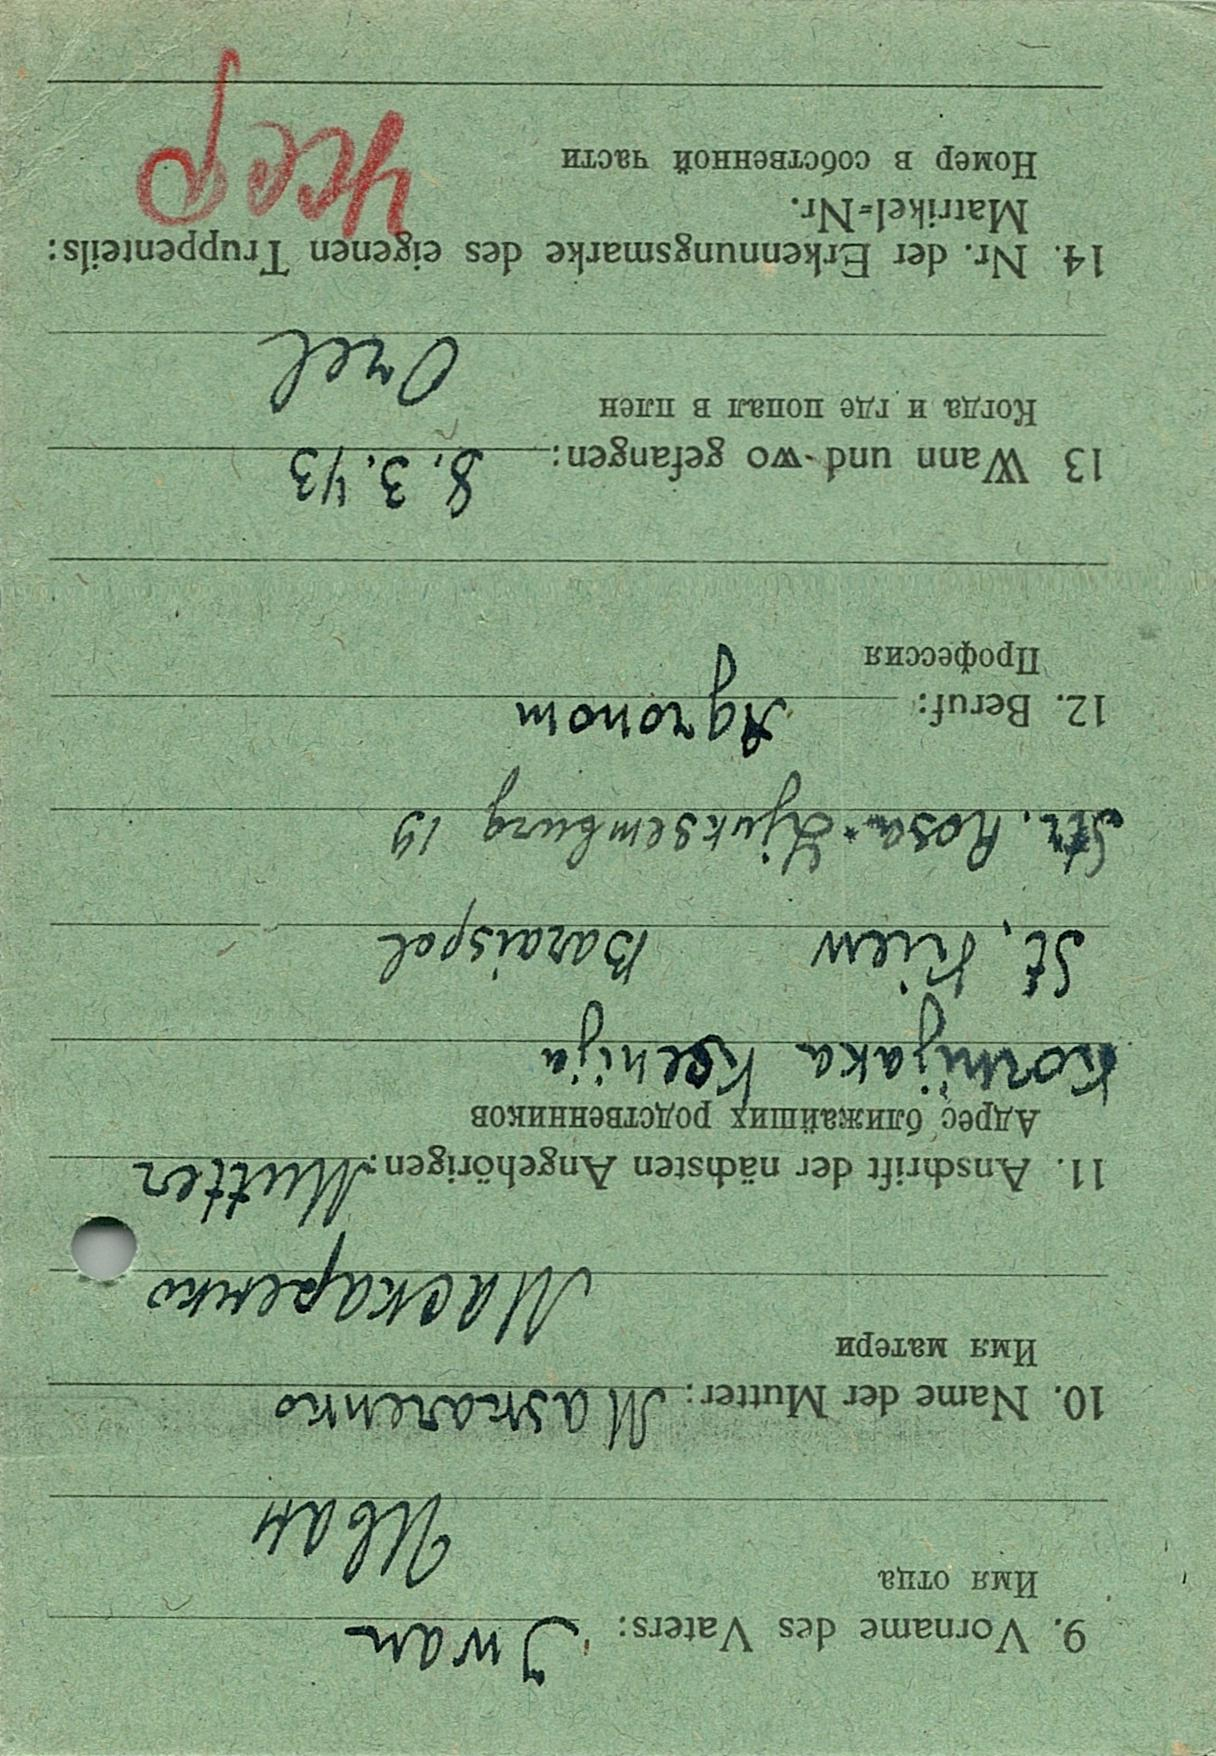 9. Vorname des Vaters: Iwan
Имя отца
Иван
10. Name der Mutter: Maskarenko
Имя матери
Маскаренко
11. Anschrift der nächsten Angehörigen: Mutter
Адрес ближайших родственников
Kornijaka Ksenija
St. Kiew Baraispol
Str. Rosa-Ljuksemburg 19
12. Beruf: Agronom
Профессия
13 Wann und wo gefangen: 8.3.43
Когда и где попал в плен
Orel
14. Nr. der Erkennungsmarke des eigenen Truppenteils:
Matrikel=Nr.
Номер в собственной части